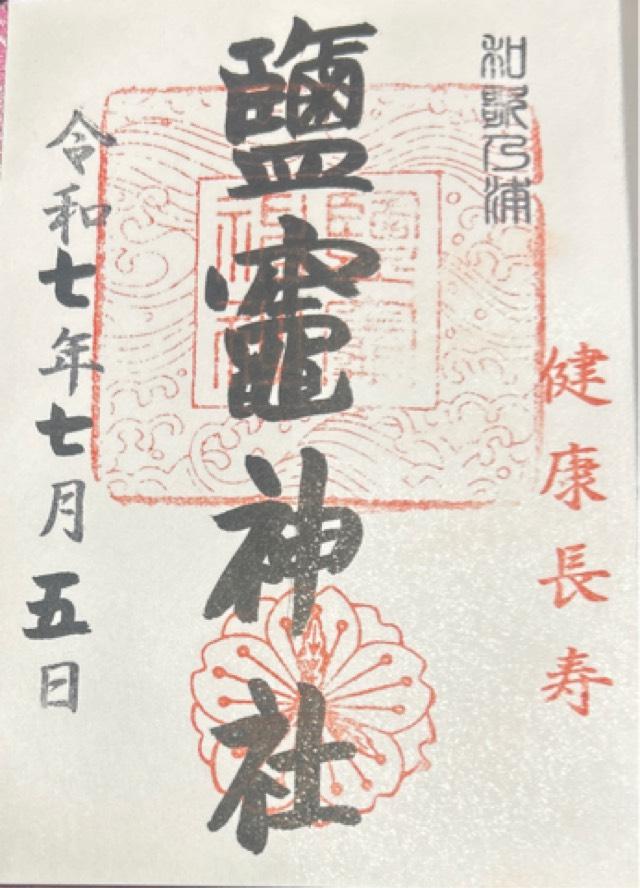 和歌乃浦
健康長寿
鹽竈神社
令和七年七月五日